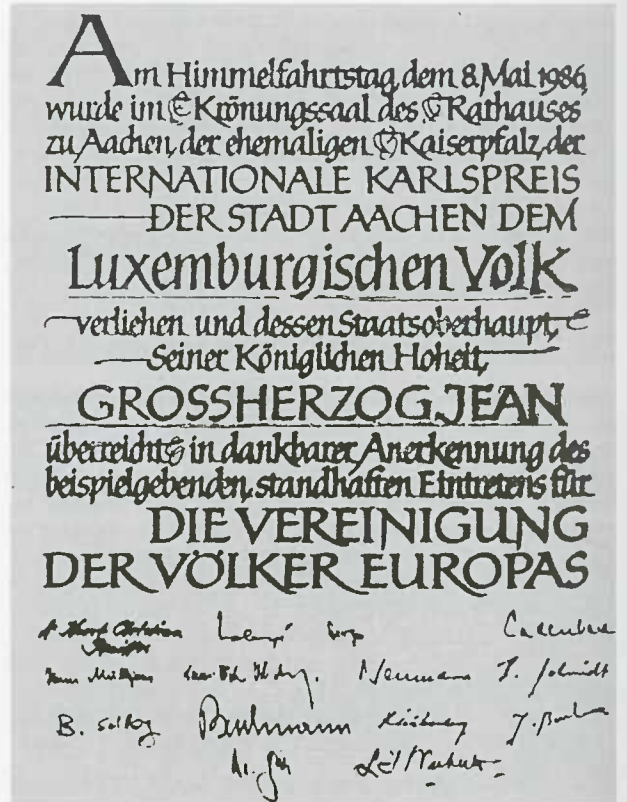 Am Himmelfahrtstag, dem 8. Mai 1986,
wurde im Krönungssaal des Rathauses
zu Aachen, der ehemaligen Kaiserpfalz, der
INTERNATIONALE KARLSPREIS
DER STADT AACHEN DEM
Luxemburgischen Volk
verliehen und dessen Staatsoberhaupt,
Seiner Königlichen Hoheit,
GROSSHERZOG JEAN
überreicht in dankbarer Anerkennung des
beispielgebenden, standhaften Eintretens für
DIE VEREINIGUNG
DER VÖLKER EUROPAS
Neumann J. Schmidt
B.